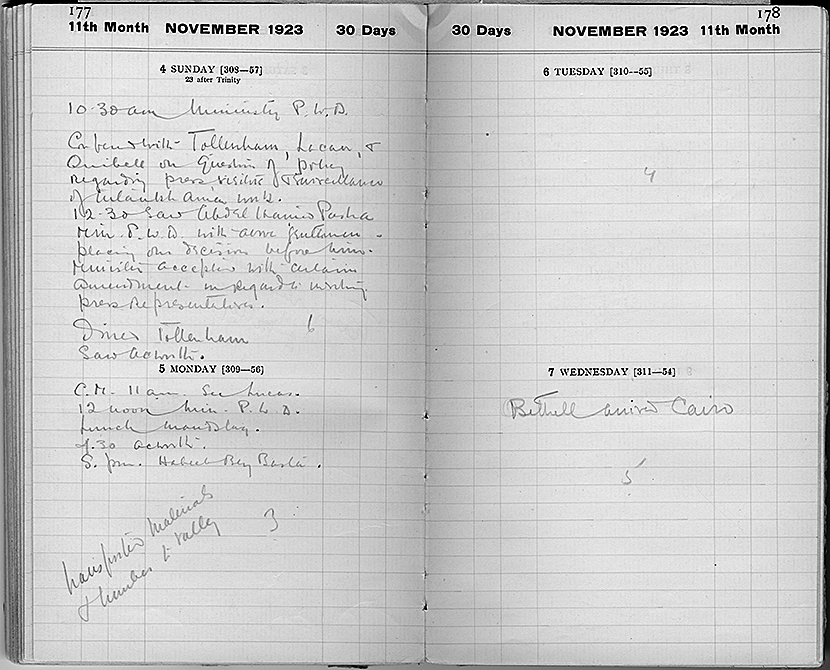 177
11th Month NOVEMBER 1923 30 Days
4 SUNDAY [308–57]
23 after Trinity
10.30 am Ministry P.W.D.
Conference with Tottenham, Lacau, &
Quibell on question of policy
regarding press visitors &
of work.
12.30 Saw Abdel Hamid Pasha
Min. P.W.D. with above gentlemen -
placing our decision before him.
Minister accepted with certain
amendment in regard to inviting
press representatives.
Dined Tottenham 6
Saw Acworth.
5 MONDAY [309—56]
C.M. 11 am. See Lucas.
12 noon Min. P.W.D.
Lunch
4.30 Acworth.
8. pm. Bey
Transported materials
& timber to valley
3
178
30 Days NOVEMBER 1923 11th Month
6 TUESDAY [310--55]
4
7 WEDNESDAY [311—54]
Bethell arrived Cairo
5